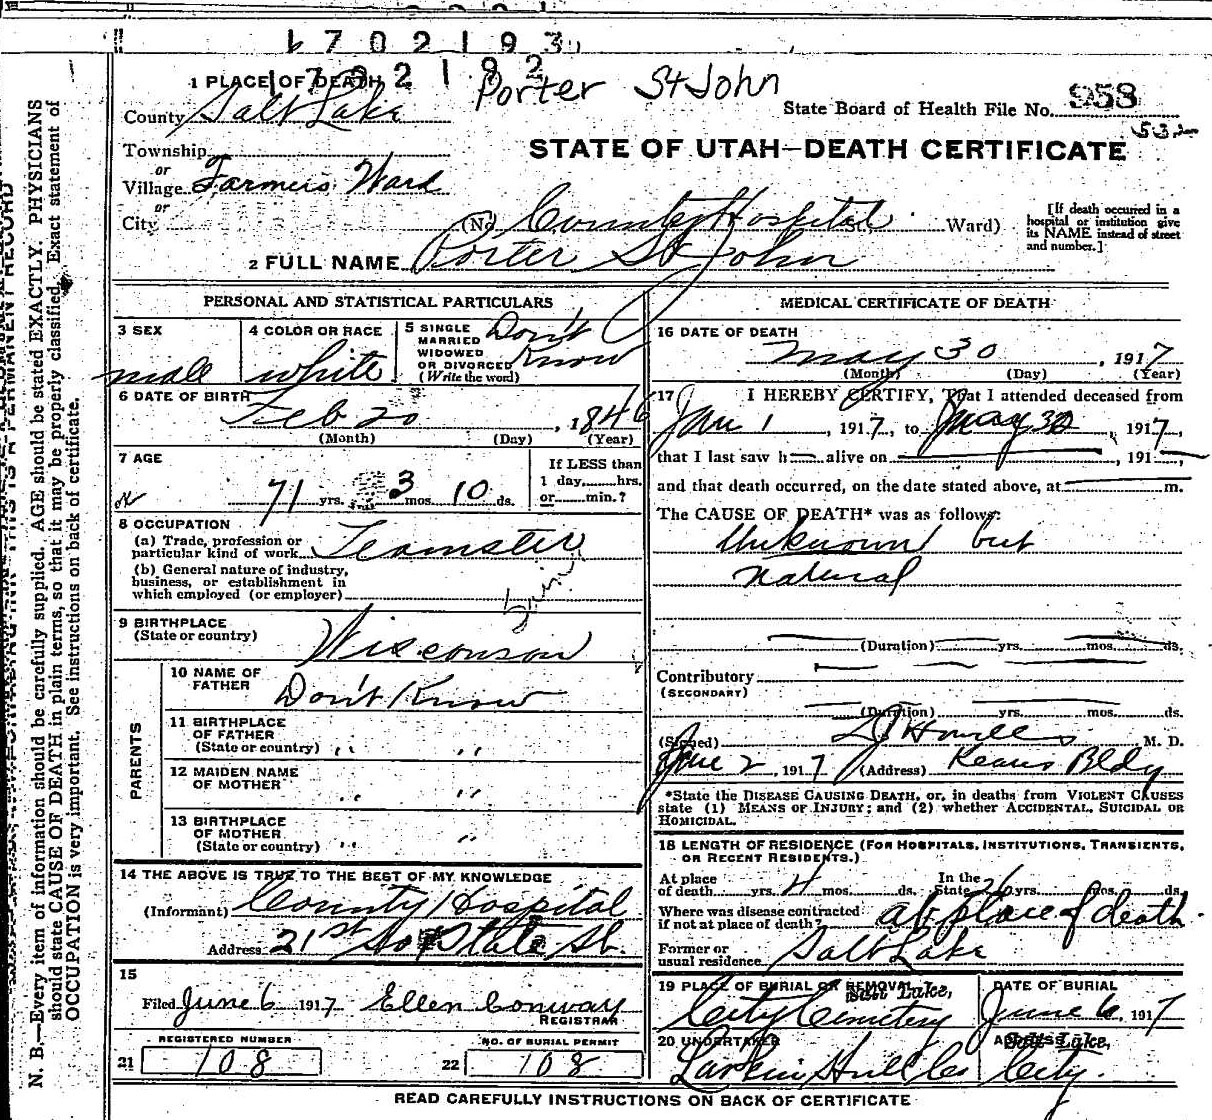 1702193
1702192
Porter St John
1 PLACE OF DEATH
County Salt Lake
State Board of Health File No. 958
532
Township
or
Village Farmers Ward
or
City
STATE OF UTAH—DEATH CERTIFICATE
(No. County Hospital St., Ward)
[If death occurred in a hospital or institution give its NAME instead of street and number.]
2 FULL NAME Porter St John
PERSONAL AND STATISTICAL PARTICULARS
3 SEX
male
4 COLOR OR RACE
white
5 SINGLE
MARRIED
WIDOWED
OR DIVORCED
(Write the word)
Don't Know
6 DATE OF BIRTH
Feb 20, 1846
(Month) (Day) (Year)
7 AGE
71 yrs. 3 mos. 10 ds.
If LESS than
1 day, hrs.
or min.?
8 OCCUPATION
(a) Trade, profession or
particular kind of work Teamster
(b) General nature of industry,
business, or establishment in
which employed (or employer)
9 BIRTHPLACE
(State or country)
Wisconson
PARENTS
10 NAME OF
FATHER
Don't Know
11 BIRTHPLACE
OF FATHER
(State or country) " "
12 MAIDEN NAME
OF MOTHER " "
13 BIRTHPLACE
OF MOTHER
(State or country) " "
14 THE ABOVE IS TRUE TO THE BEST OF MY KNOWLEDGE
(Informant) County Hospital
Address 21st So & State St.
15
Filed June 6 1917 Ellen Conway
REGISTRAR
REGISTERED NUMBER
21 108
NO. OF BURIAL PERMIT
22 108
MEDICAL CERTIFICATE OF DEATH
16 DATE OF DEATH
May 30, 1917
(Month) (Day) (Year)
17 I HEREBY CERTIFY, That I attended deceased from
Jan 1, 1917, to May 30, 1917,
that I last saw h— alive on —, 191—,
and that death occurred, on the date stated above, at — m.
The CAUSE OF DEATH* was as follows:
Unknown but
Natural
(Duration) yrs. mos. ds.
Contributory
(SECONDARY)
(Duration) yrs. mos. ds.
(Signed) Howells M. D.
June 2, 1917 (Address) Kearns Bldg
*State the DISEASE CAUSING DEATH, or, in deaths from VIOLENT CAUSES
state (1) MEANS OF INJURY; and (2) whether ACCIDENTAL, SUICIDAL OR
HOMICIDAL.
18 LENGTH OF RESIDENCE (FOR HOSPITALS, INSTITUTIONS, TRANSIENTS,
OR RECENT RESIDENTS.)
At place
of death yrs. 4 mos. ds.
In the
State 26 yrs. mos. ds.
Where was disease contracted
if not at place of death? at place of death.
Former or
usual residence Salt Lake
19 PLACE OF BURIAL OR REMOVAL
Salt Lake,
City Cemetery
DATE OF BURIAL
June 6, 1917
20 UNDERTAKER
Larkin Hull Co
ADDRESS
Salt Lake,
City.
READ CAREFULLY INSTRUCTIONS ON BACK OF CERTIFICATE
N. B.—Every item of information should be carefully supplied. AGE should be stated EXACTLY. PHYSICIANS
should state CAUSE OF DEATH in plain terms, so that it may be properly classified. Exact statement of
OCCUPATION is very important. See instructions on back of certificate.